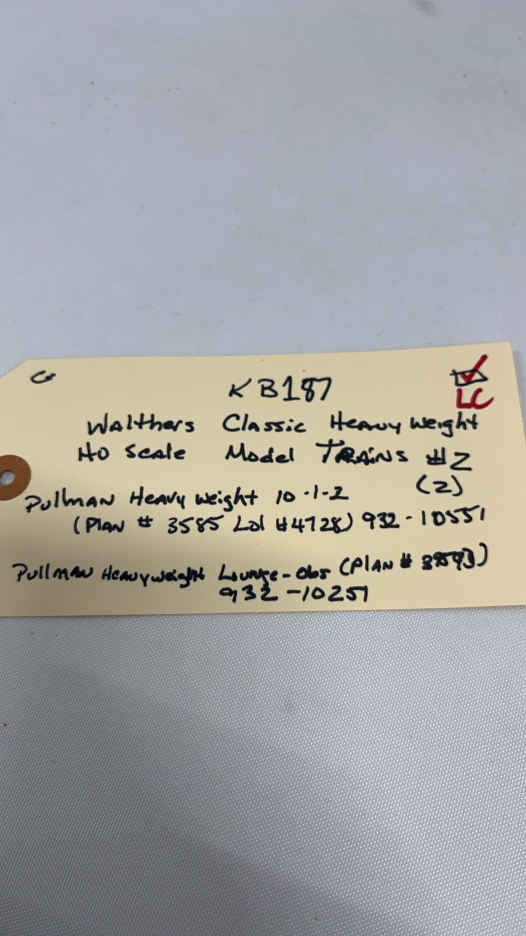 KB187
LC
Walthers Classic Heavy Weight
HO Scale Model TRAINS #2
(2)
Pullman Heavy Weight 10-1-2
(Plan # 3585 Lot #4728) 932-10551
Pullman Heavyweight Lounge-Obs (Plan # 3959)
932-10251